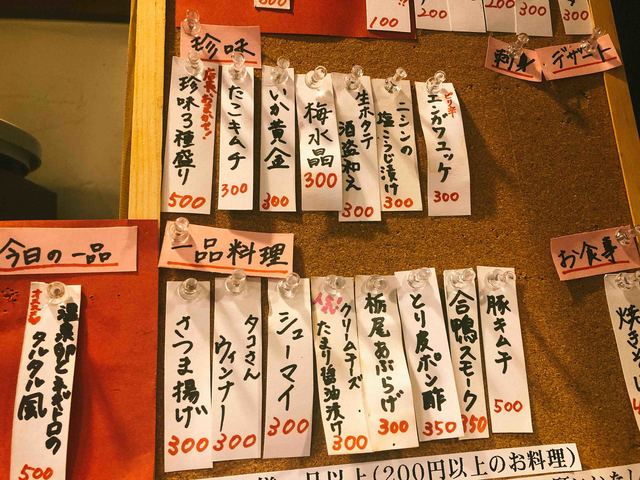 300
100
200
500
300
300
刺身
デザート
珍味
店長おまかせ!
珍味3種盛り
500
たこキムチ
300
いか黄金
300
梅水晶
300
生ホタテ
酒盗和え
300
ニシンの
塩こうじ漬け
300
ピリ辛
エンガワユッケ
300
一品料理
さつま揚げ
300
タコさん
ウィンナー
300
シューマイ
300
人気
クリームチーズ
たまり醤油漬け
300
栃尾あぶらげ
300
とり皮ポン酢
350
合鴨スモーク
350
豚キムチ
500
お食事
焼き
今日の一品
オススメ
温泉卵と
タルタル風
500
一品以上(200円以上のお料理)